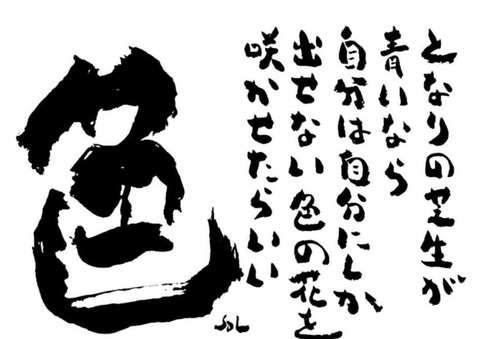 色
となりの芝生が
青いなら
自分は自分にしか
出せない色の花を
咲かせたらいい